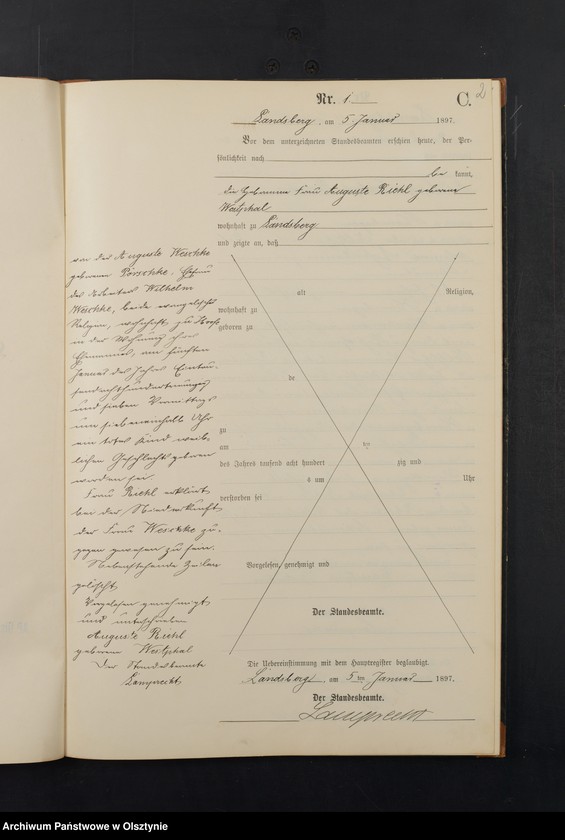 2
Nr. 1
C.
Landsberg, am 5. Januar 1897.
Vor dem unterzeichneten Standesbeamten erschien heute, der Per-
sönlichkeit nach
be kannt,
die Hebamme Frau Auguste Riehl geborene
Westphal
wohnhaft zu Landsberg
und zeigte an, daß
von der Auguste Weschke
geborenen Porschke, Ehefrau
des Arbeiters Wilhelm
Weschke, beide evangelischer
Religion, wohnhaft zu
in der Wohnung ihres
Ehemannes, am fünften
Januar des Jahres Eintau-
sendachthundertneunzig
und sieben Vormittags
um siebeneinhalb Uhr
ein totes Kind weib-
lichen Geschlechts geboren
worden sei.
Frau Riehl erklärt
bei der Niederkunft
der Frau Weschke zu-
gegen gewesen zu sein.
Nebenstehende Zeilen
gelöscht
Vorgelesen genehmigt
und unterschrieben
Auguste Riehl
geborene Westphal
Der Standesbeamte
Lamprecht
alt Religion,
wohnhaft zu
geboren zu
de
zu
am
des Jahres tausend acht hundert zig und
s um Uhr
verstorben sei
Vorgelesen, genehmigt und
Der Standesbeamte.
Die Uebereinstimmung mit dem Hauptregister beglaubigt.
Landsberg am 5ten Januar 1897.
Der Standesbeamte.
Lamprecht
Archiwum Państwowe w Olsztynie